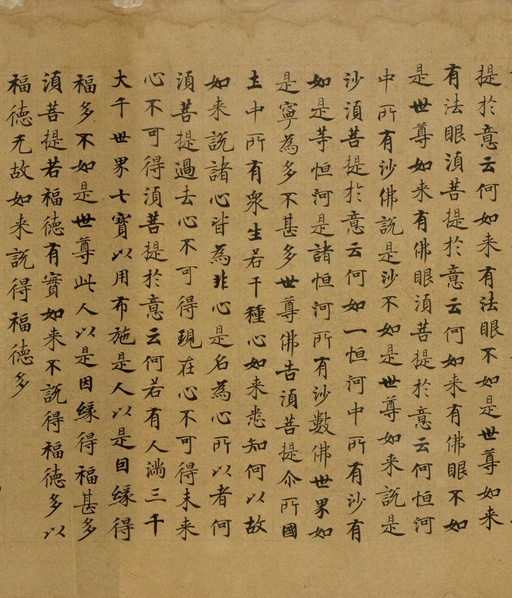 提於意云何如来有法眼不如是世尊如来
有法眼湏菩提於意云何如来有佛眼不如
是世尊如来有佛眼湏菩提於意云何恒河
中所有沙佛說是沙不如是世尊如来說是
沙湏菩提於意云何如一恒河中所有沙有
如是等恒河是諸恒河所有沙數佛世界如
是寧為多不甚多世尊佛告湏菩提尒所國
土中所有衆生若干種心如来悉知何以故
如来說諸心皆為非心是名為心所以者何
湏菩提過去心不可得現在心不可得未来
心不可得湏菩提於意云何若有人満三千
大千世界七寶以用布施是人以是因縁得
福多不如是世尊此人以是因縁得福甚多
湏菩提若福德有實如来不說得福德多以
福德无故如来說得福德多